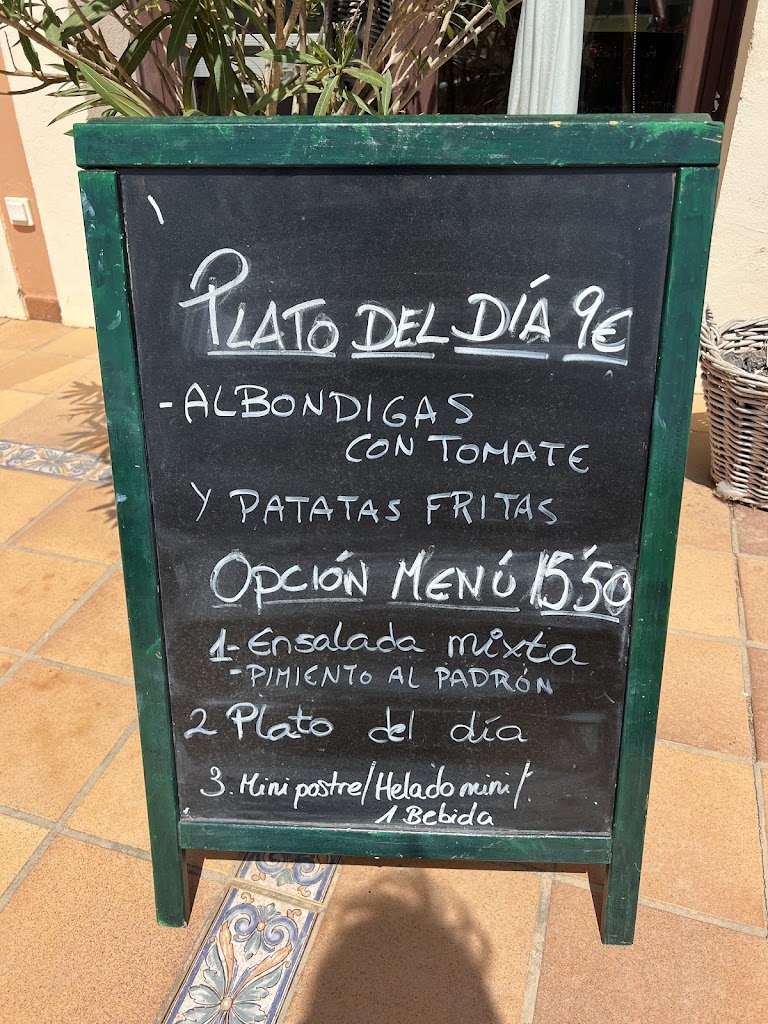 PLATO DEL DÍA 9€
- ALBONDIGAS
CON TOMATE
Y PATATAS FRITAS
OPCIÓN MENÚ 15'50
1- Ensalada mixta
- PIMIENTO AL PADRÓN
2 Plato del día
3. Mini postre/Helado mini/.
1 Bebida